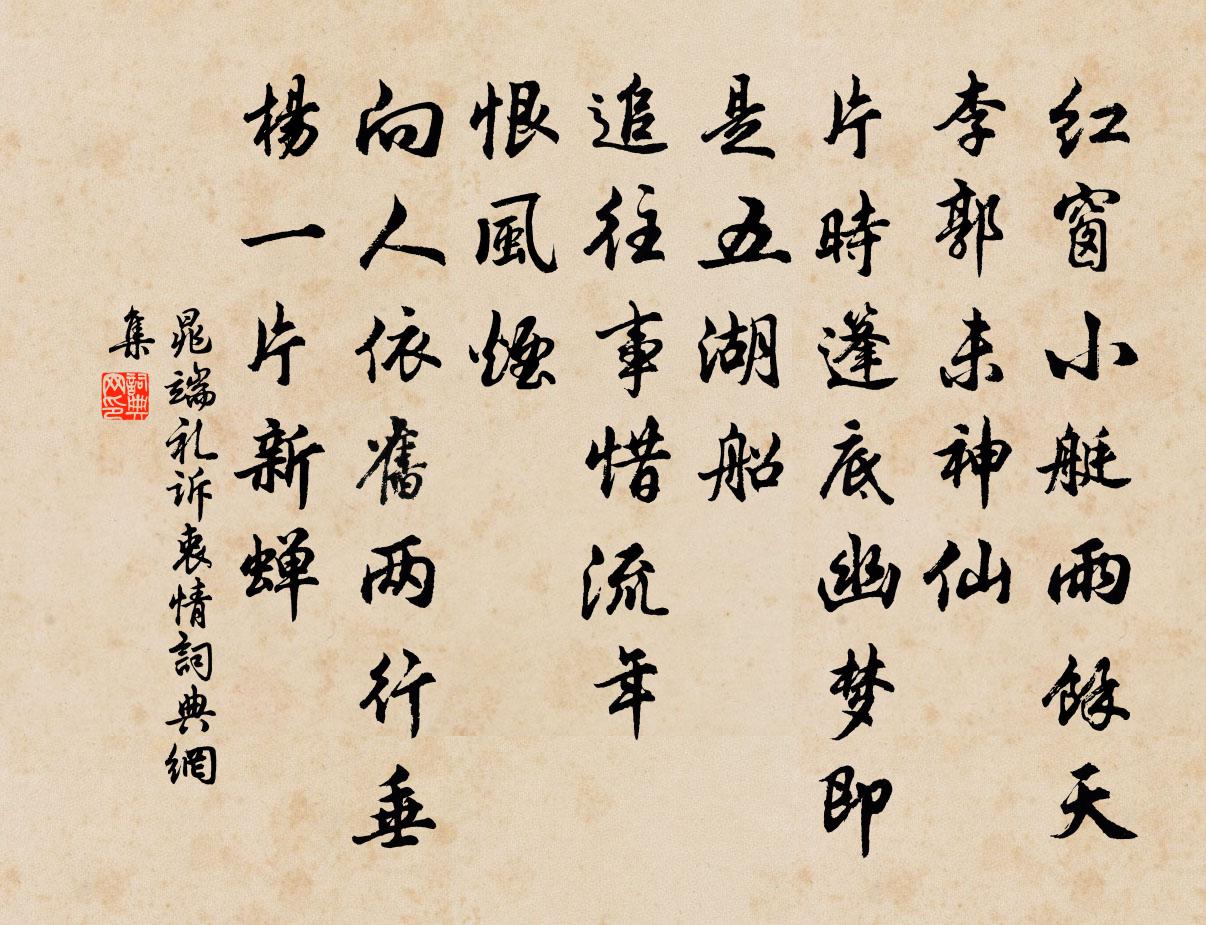 红窗小艇雨餘天
李郭未神仙
片時蓬底幽梦即
是五湖船
追往事惜流年
恨風煙
向人依舊两行垂
楊一片新蝉
晁端礼诉衷情詞典網
集
詞典网印